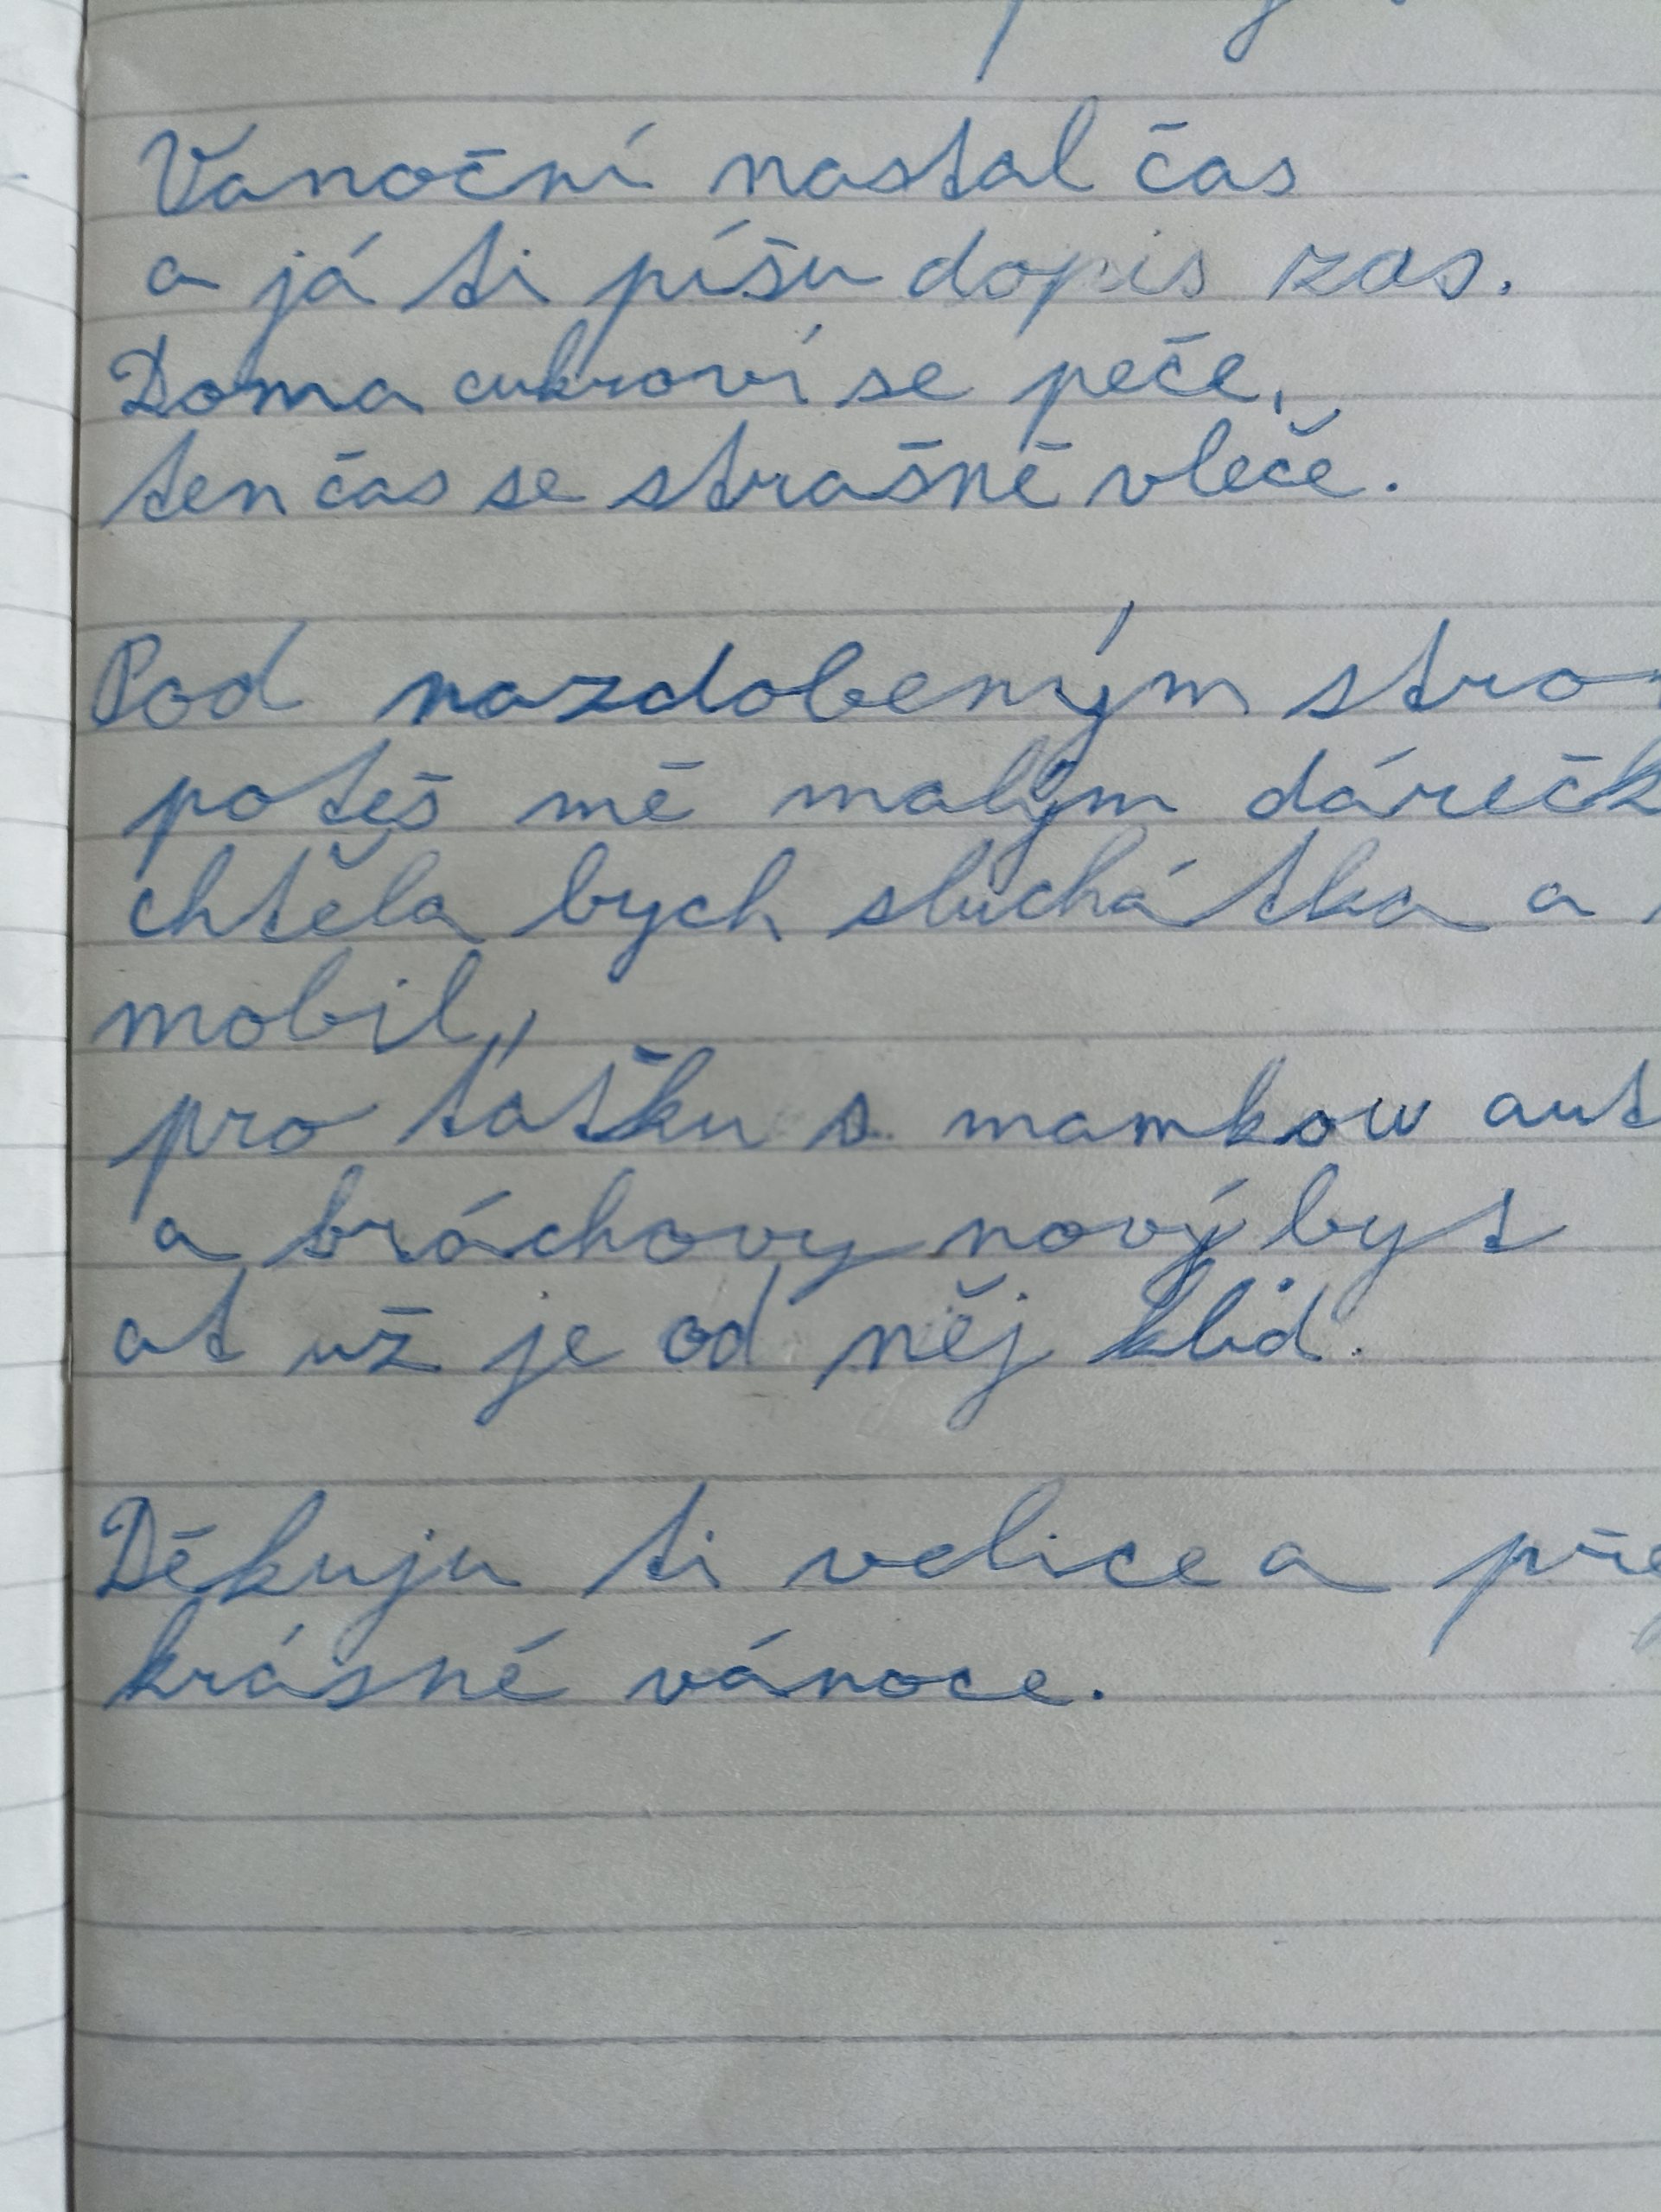 Vánoční nastal čas
a já ti píšu dopis zas.
Doma cukroví se peče,
ten čas se strašně vleče.
Pod nazdobeným
potěš mě malým
chtěla bych sluchátka a
mobil,
pro taťku s mamkou
a bráchovy nový byt
at už je od něj klid.
Děkuju ti velice a
krásné vánoce.